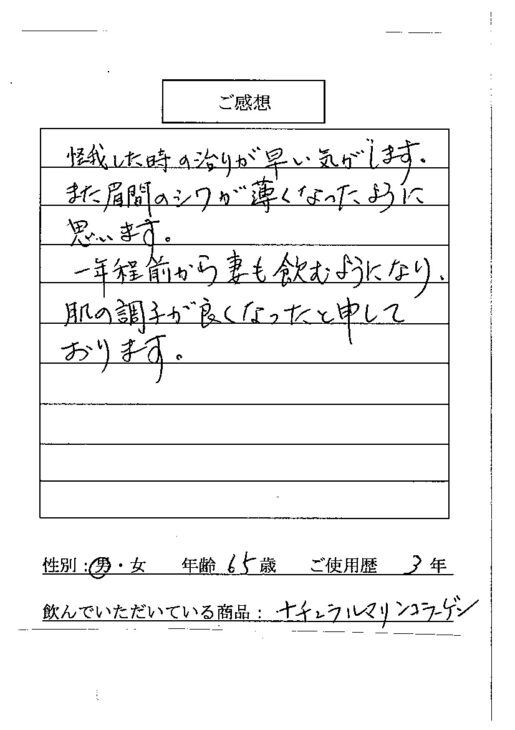 ご感想
怪我した時の治りが早い気がします。
また眉間のシワが薄くなったように
思います。
一年程前から妻も飲むようになり、
肌の調子が良くなったと申して
おります。
性別：男・女　年齢 65歳　ご使用歴 3年
飲んでいただいている商品：ナチュラルマリンコラーゲン